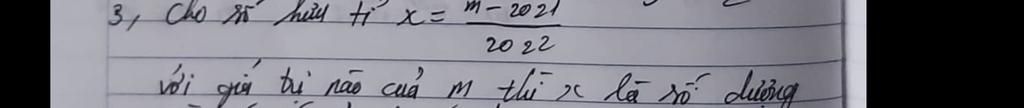 3, Cho số hữu tỉ x = m - 2021 / 2022
với giá trị nào của m thì x là số dương